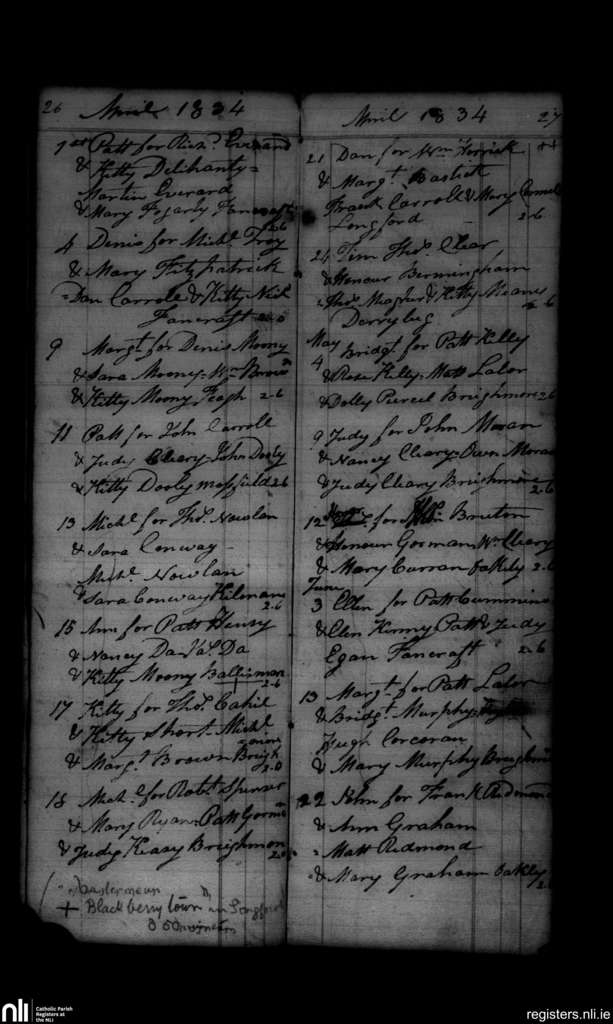 26 April 1834
1st Patt for Richd. Everard
& Kitty Delihanty=
Martin Everard
& Mary Fogarty Fancroft
2.6
4 Denis for Michl. Troy
& Mary Fitzpatrick
=Dan Carroll & Kitty
Fancroft 2.6
9 Margt. for Denis Moony
& Sara Mooney. Wm. Brown
& Kitty Moony 2.6
11 Patt for John Carroll
& Judy Cleary. John Dooly
& Kitty Dooly mossfield 2.6
13 Michl. for Thos. Nowlan
& Sara Conway
Michl. Nowlan
& Sara Conway
2.6
15 Ann for Patt Henry
& Nancy Da
& Kitty Moony
2.6
17 Kitty for Thos. Cahil
& Kitty Short. Michl.
& Margt. Brown
2.6
18 for Robt. Spenser
& Mary Ryan. Patt
& Judy Brighmore
2.6
+ Black berry town in
April 1834 27
21 Dan for Wm. Herrick
& Margt. Bastick
Frank Carroll & Mary
Longford 2.6
24 Tim Thos. Clear
& Honour Bermingham
=Thos. Magher & Kitty Meanes
Derrybeg 2.6
May
4 Bridgt. for Patt Kelly
& Rose Kelly. Matt Lalor
& Dolly Purcel Brighmore 2.6
9 Judy for John Moran
& Nancy Cleary. Owen Moran
& Judy Cleary Brighmore
2.6
12 for Bruton
& Honour Gorman Wm. Cleary
& Mary Curran Oakley 2.6
June
3 Ellen for Patt Cummins
& Elen Kenny Patt & Judy
Egan Fancroft 2.6
13 Margt. for Patt Lalor
& Bridgt. Murphy
Hugh Corcoran
& Mary Murphy Brighmore
22 John for Frank Redmond
& Ann Graham
= Matt Redmond
& Mary Graham Oakley
2.6
nli Catholic Parish
Registers at
the NLI
registers.nli.ie